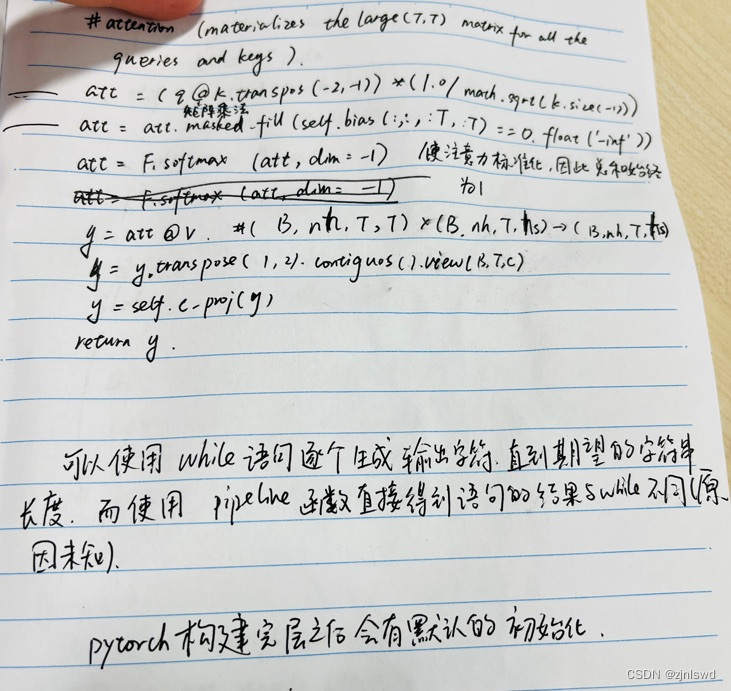 # attention (materializes the large (T,T) matrix for all the
queries and keys).
att = (q @ k.transpos(-2,-1)) * (1.0/math.sqrt(k.size(-1)))
矩阵乘法
att = att.masked-fill(self.bias(:,:,:T,:T) == 0. float('-inf'))
att = F.softmax (att, dim = -1) 使注意力标准化,因此总和始终
为1
att = F.softmax (att, dim = -1)
y = att @ v. #( B, nh, T, T) × (B, nh, T, hs) → (B, nh, T, hs)
y = y.transpose(1,2).contiguos().view(B,T,C)
y = self.c-proj(y)
return y.
可以使用 while 语句逐个生成输出字符.直到期望的字符串
长度.而使用 pipeline 函数直接得到语句的结果与while不同(原
因未知).
pytorch构建完层之后会有默认的初始化.
CSDN @zjnlswd